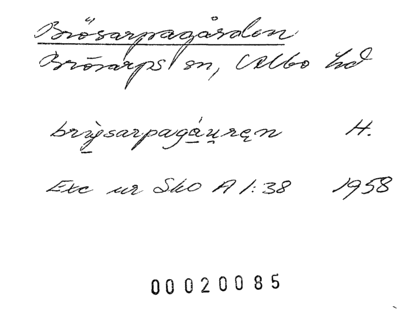 Brösarpagården
Brösarps sn, Albo hd
brỳsarpagáu̯ręn H.
Exc ur Sko A 1:38 1958
00020085